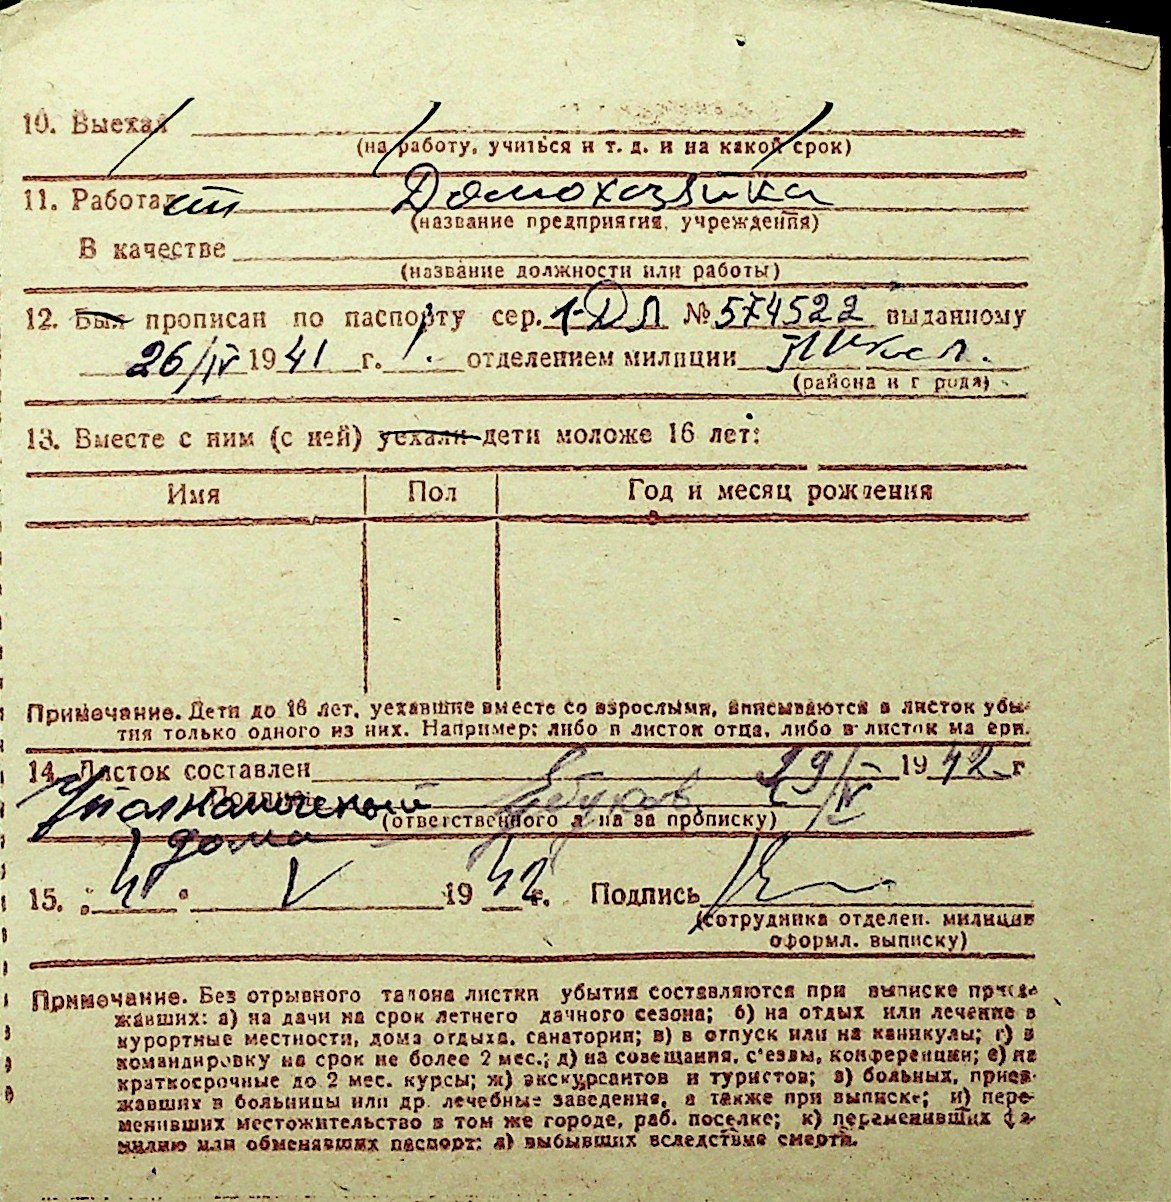 10. Выехал
(на работу, учиться и т. д. и на какой срок)
11. Работал Домохозяйка
(название предприятия, учреждения)
В качестве
(название должности или работы)
12. Был прописан по паспорту сер. 1-ДЛ № 574522 выданному
26/IV 1941 г. 1. отделением милиции
(района и города)
13. Вместе с ним (с ней) уехали дети моложе 16 лет:
Имя Пол Год и месяц рождения
Примечание. Дети до 16 лет, уехавшие вместе со взрослыми, вписываются в листок убы-
тия только одного из них. Например: либо в листок отца, либо в листок матери.
14. Листок составлен 29/IV 1942 г
Подпись
(ответственного лица за прописку)
дома
15. „4" V 1942 г. Подпись
(сотрудника отделен. милиции
оформл. выписку)
Примечание. Без отрывного талона листки убытия составляются при выписке приез-
жавших: а) на дачи на срок летнего дачного сезона; б) на отдых или лечение в
курортные местности, дома отдыха, санатории; в) в отпуск или на каникулы; г) в
командировку на срок не более 2 мес.; д) на совещания, с'езды, конференции; е) на
краткосрочные до 2 мес. курсы; ж) экскурсантов и туристов; з) больных, приез-
жавших в больницы или др. лечебные заведения, а также при выписке; и) пере-
менивших местожительство в том же городе, раб. поселке; к) переменивших фа-
милию или обменявших паспорт; л) выбывших вследствие смерти.